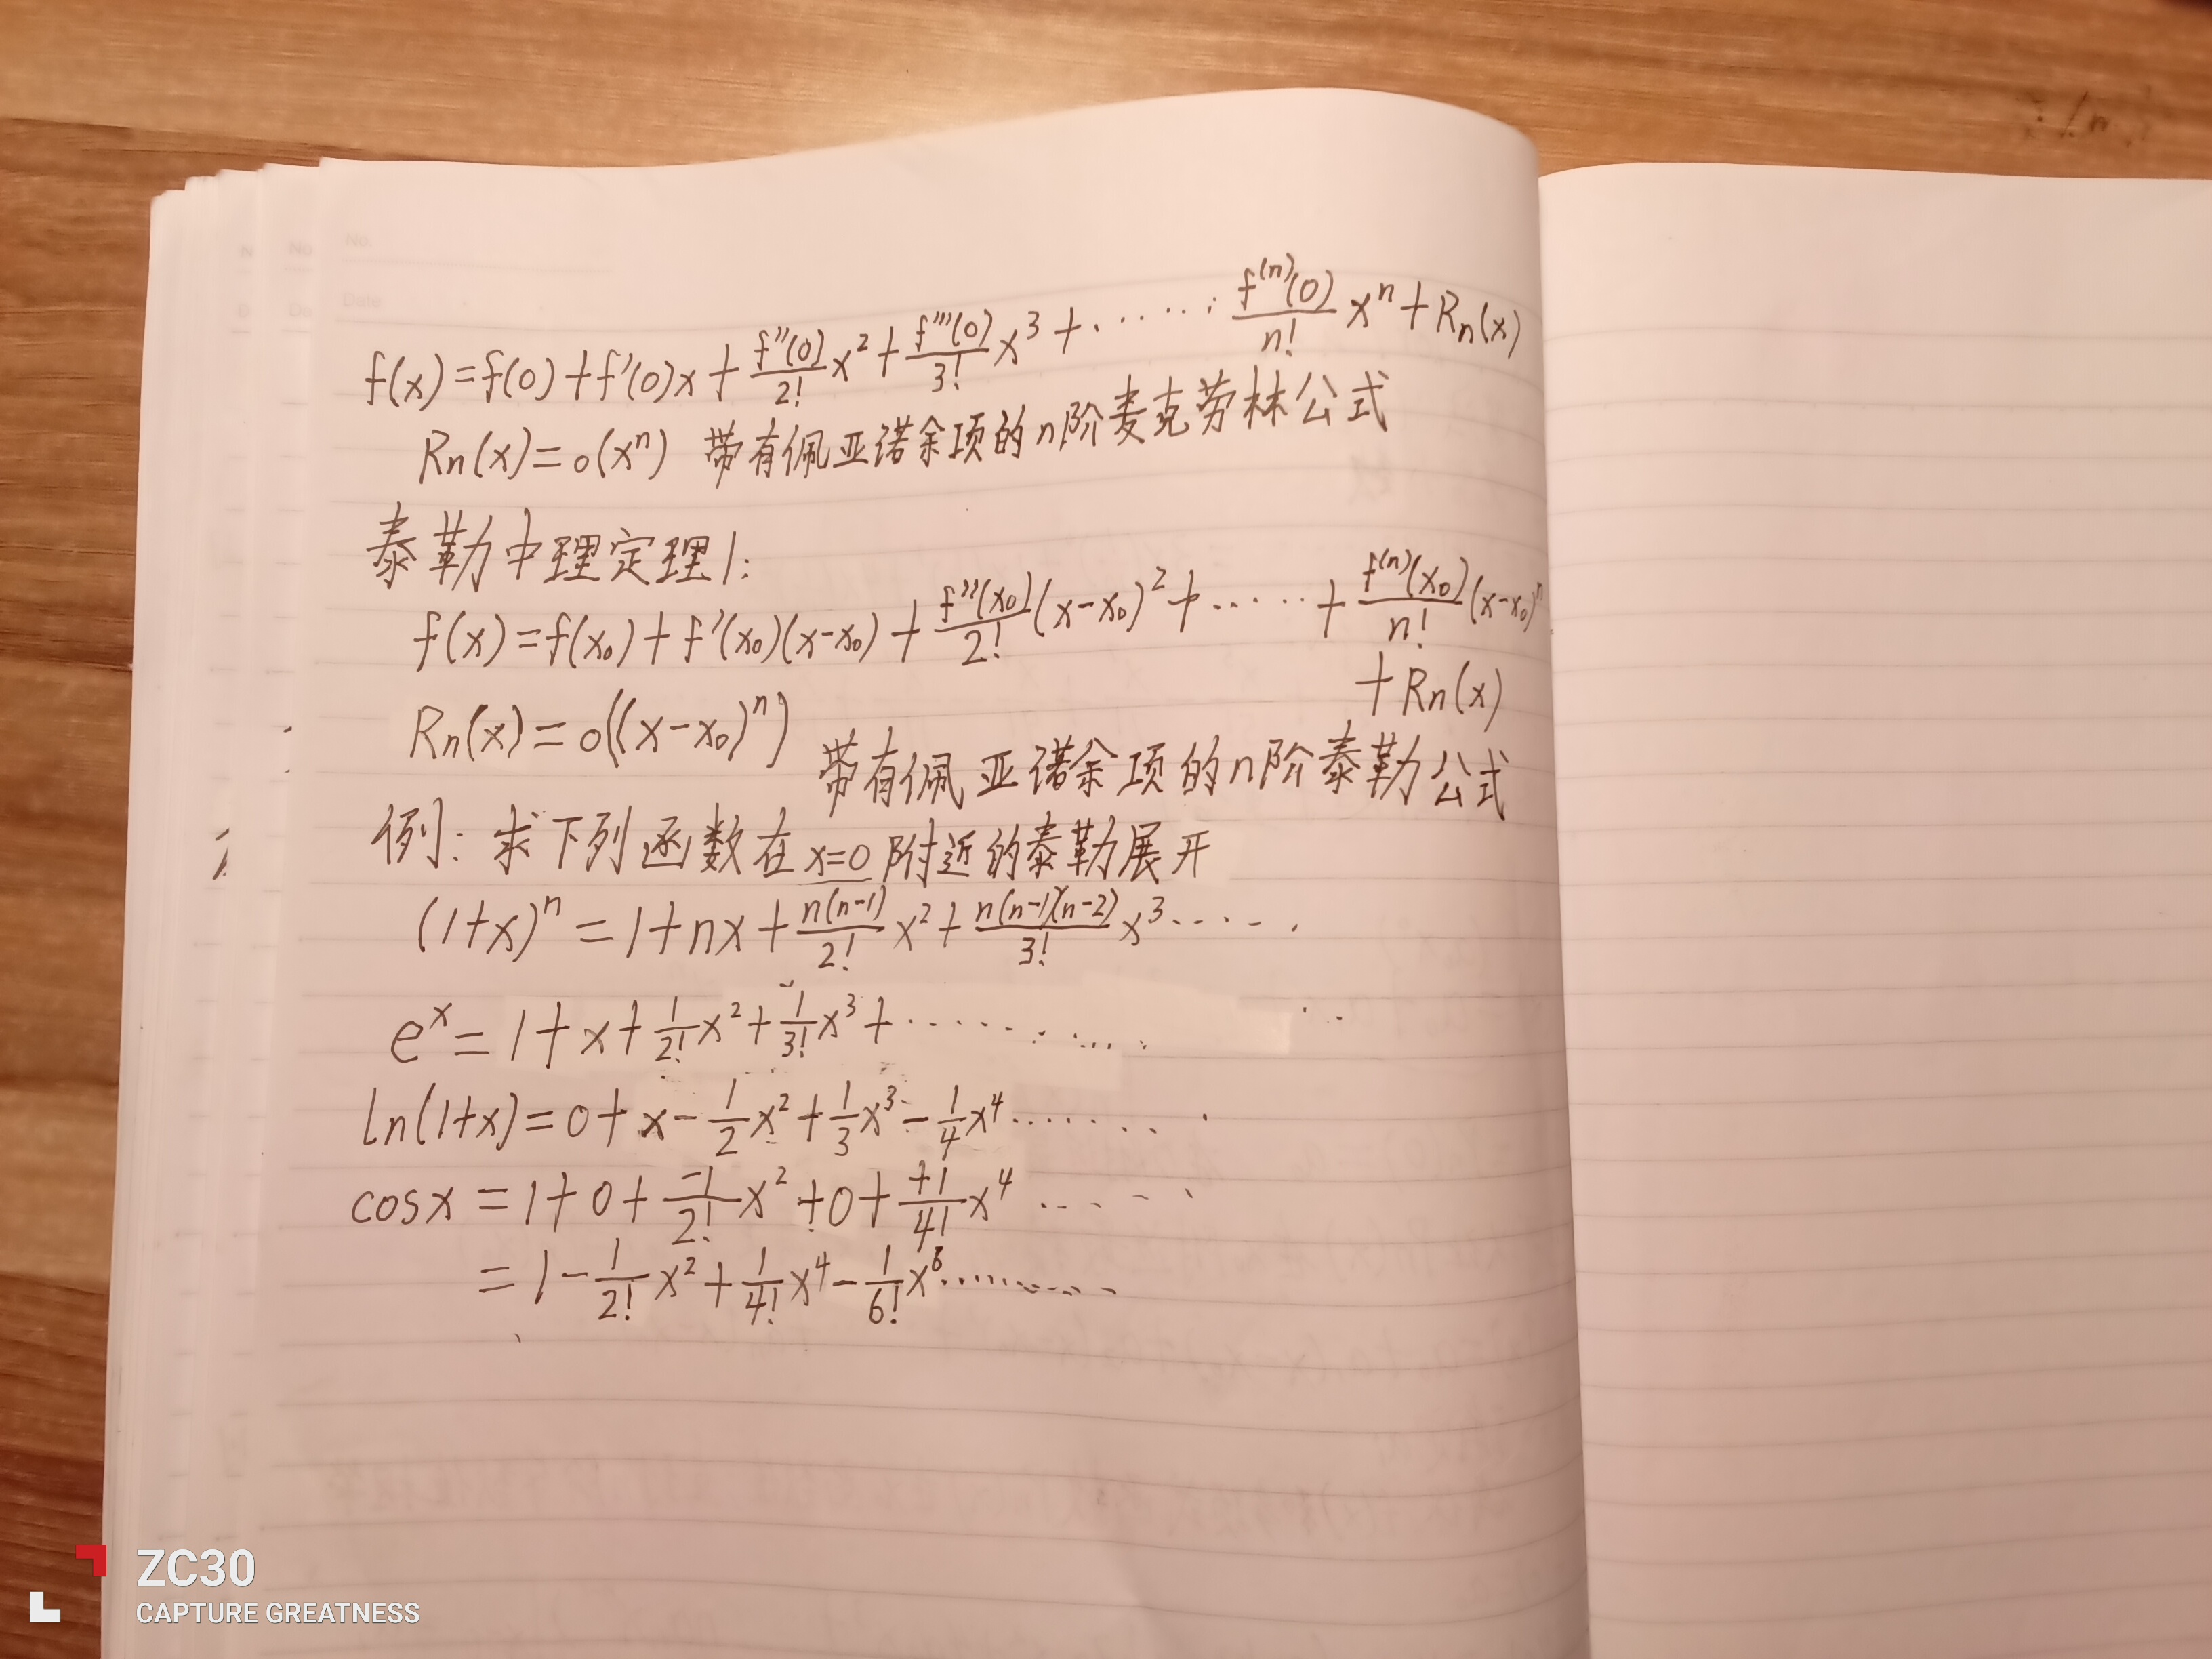 No.
Date
f(x)=f(0)+f'(0)x+\frac{f''(0)}{2!}x^2+\frac{f'''(0)}{3!}x^3+······\frac{f^{(n)}(0)}{n!}x^n+R_n(x)
R_n(x)=o(x^n) 带有佩亚诺余项的n阶麦克劳林公式
泰勒中理定理1:
f(x)=f(x_0)+f'(x_0)(x-x_0)+\frac{f''(x_0)}{2!}(x-x_0)^2+······+\frac{f^{(n)}(x_0)}{n!}(x-x_0)^n
+R_n(x)
R_n(x)=o((x-x_0)^n)
带有佩亚诺余项的n阶泰勒公式
例:求下列函数在x=0附近的泰勒展开
(1+x)^n=1+nx+\frac{n(n-1)}{2!}x^2+\frac{n(n-1)(n-2)}{3!}x^3·····
e^x=1+x+\frac{1}{2!}x^2+\frac{1}{3!}x^3+············
ln(1+x)=0+x-\frac{1}{2}x^2+\frac{1}{3}x^3-\frac{1}{4}x^4········
cosx=1+0+\frac{-1}{2!}x^2+0+\frac{+1}{4!}x^4·····
=1-\frac{1}{2!}x^2+\frac{1}{4!}x^4-\frac{1}{6!}x^6···········
ZC30
CAPTURE GREATNESS